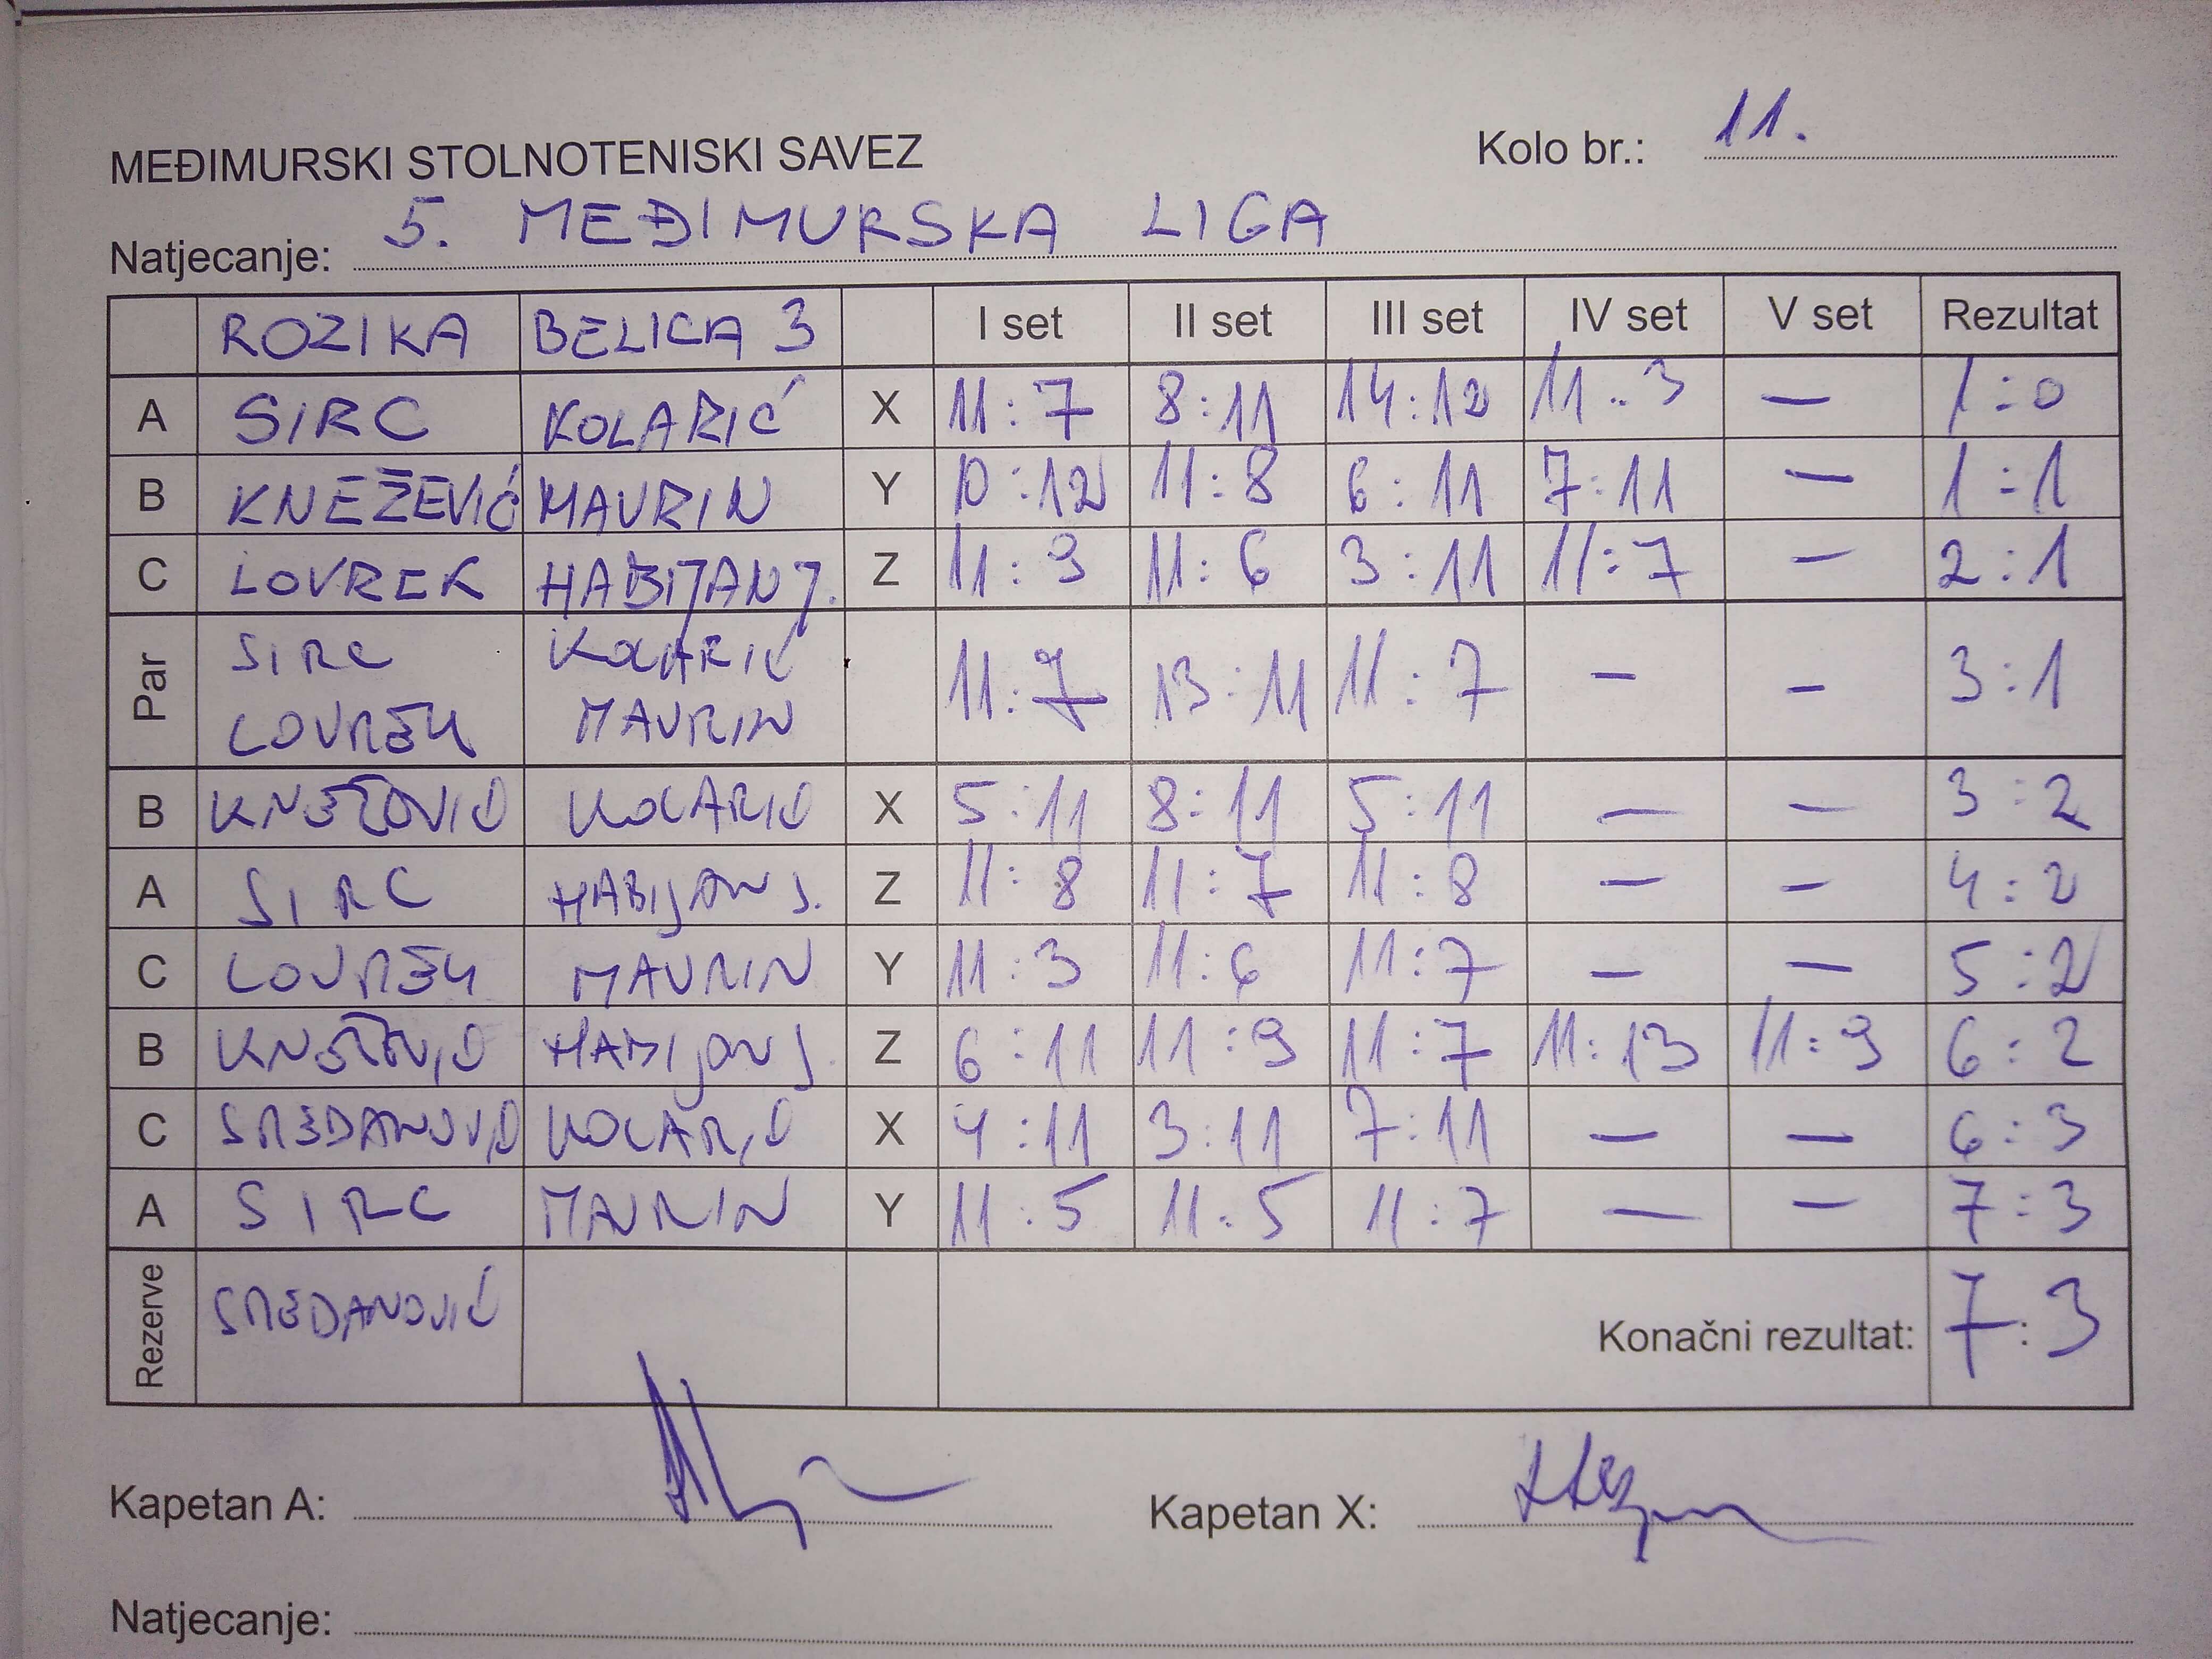 MEĐIMURSKI STOLNOTENISKI SAVEZ Kolo br.: 11.
Natjecanje: 5. MEĐIMURSKA LIGA
ROZIKA BELICA 3 I set II set III set IV set V set Rezultat
A SIRC KOLARIĆ X 11:7 8:11 14:12 11:3 — 1:0
B KNEŽEVIĆ MAVRIN Y 10:12 11:8 6:11 7:11 — 1:1
C LOVREK HABIJAN J. Z 11:9 11:6 3:11 11:7 — 2:1
Par SIRC KOLARIĆ 11:7 13:11 11:7 — — 3:1
LOVREK MAVRIN
B KNEŽEVIĆ KOLARIĆ X 5:11 8:11 5:11 — — 3:2
A SIRC HABIJAN J. Z 11:8 11:7 11:8 — — 4:2
C LOVREK MAVRIN Y 11:3 11:6 11:7 — — 5:2
B KNEŽEVIĆ HABIJAN J. Z 6:11 11:9 11:7 11:13 11:9 6:2
C SREDANOVIĆ KOLARIĆ X 4:11 3:11 7:11 — — 6:3
A SIRC MAVRIN Y 11:5 11:5 11:7 — — 7:3
Rezerve SREDANOVIĆ Konačni rezultat: 7:3
Kapetan A: Kapetan X:
Natjecanje: